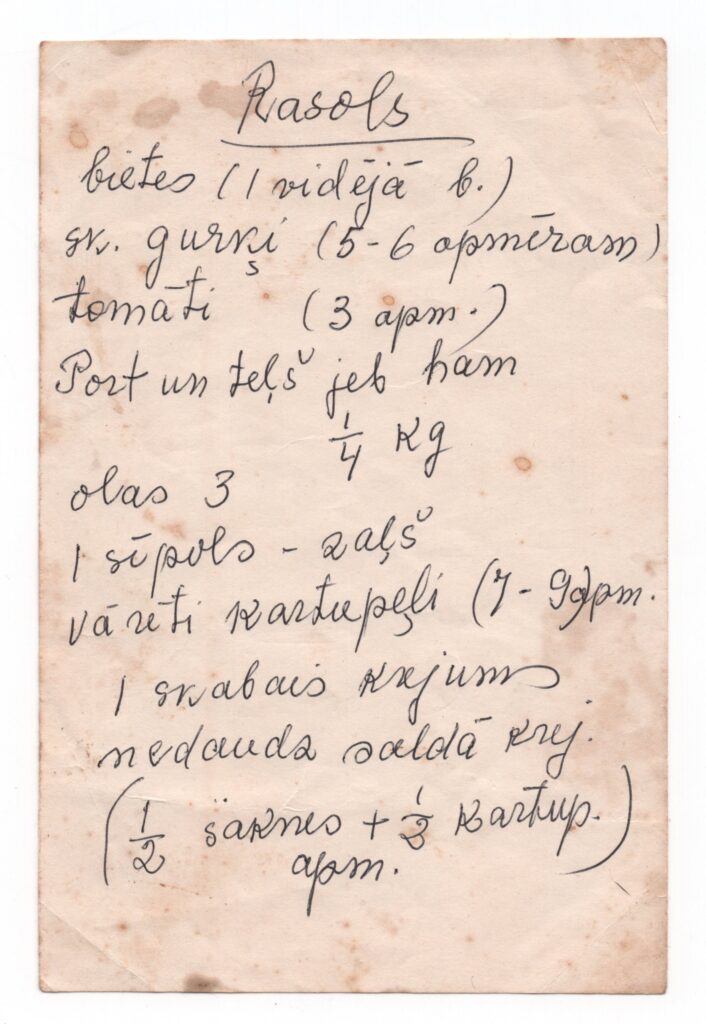 Rasols
bietes (1 vidējā b.)
sk. gurķi (5-6 apmēram)
tomāti (3 apm.)
Port un teļš jeb ham
1/4 kg
olas 3
1 sīpols - zaļš
vārēti kartupeļi (7-9) apm.
1 skabais krejums
nedaudz saldā krej.
(1/2 šaknes + 1/2 kartup.
apm.)